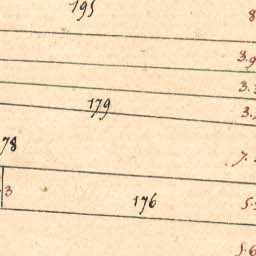 195
8
3.9
3.
179
3.
78
7.
3
176
5.
5.6